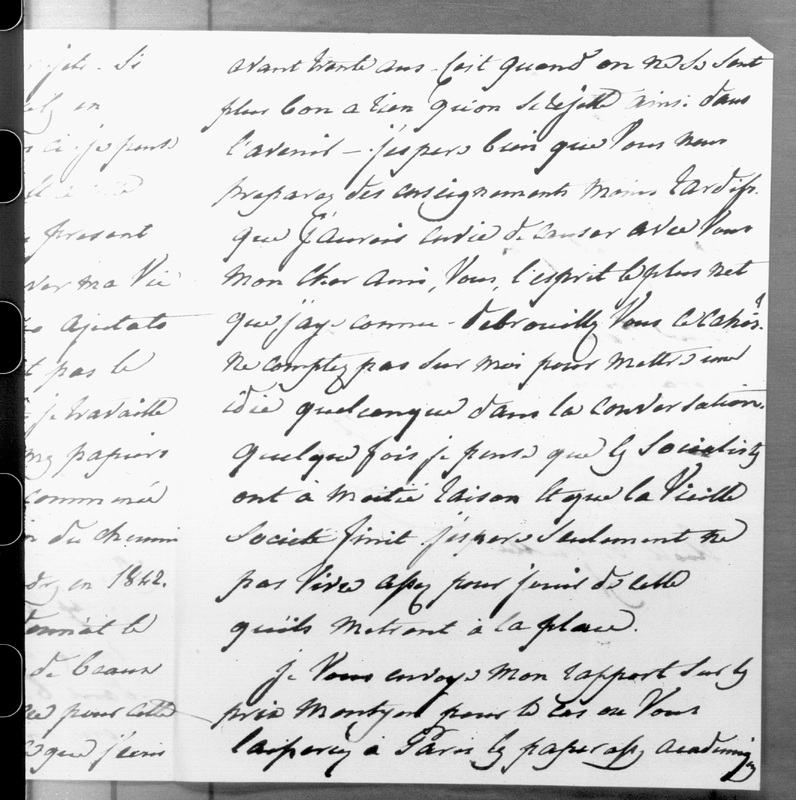 si
en
ci. je pense
present
ma vie
ajustats
pas le
je travaille
mes papiers
commencé
du chemin
en 1842.
le
de beaux
pour cette
que j'ecris
avant trente ans. c'est quand on ne se sent
plus bon a rien qu'on se rejette ainsi dans
l'avenir — j'espere bien que vous nous
preparez des enseignements moins tardifs.
que j'aurois envie de causer avec vous
mon cher ami, vous, l'esprit le plus net
que j'aye connu. debrouillez vous ce cahos.
ne comptez pas sur moi pour mettre une
idée quelconque dans la conversation.
quelque fois je pense que les socialistes
ont à moitié raison et que la vieille
société finit. j'espere seulement ne
pas vivre assez pour jouir de celle
qu'ils metront à la place.
je vous envoye mon rapport sur les
prix Montyon pour le cas ou vous
à Paris les paperasses academiques